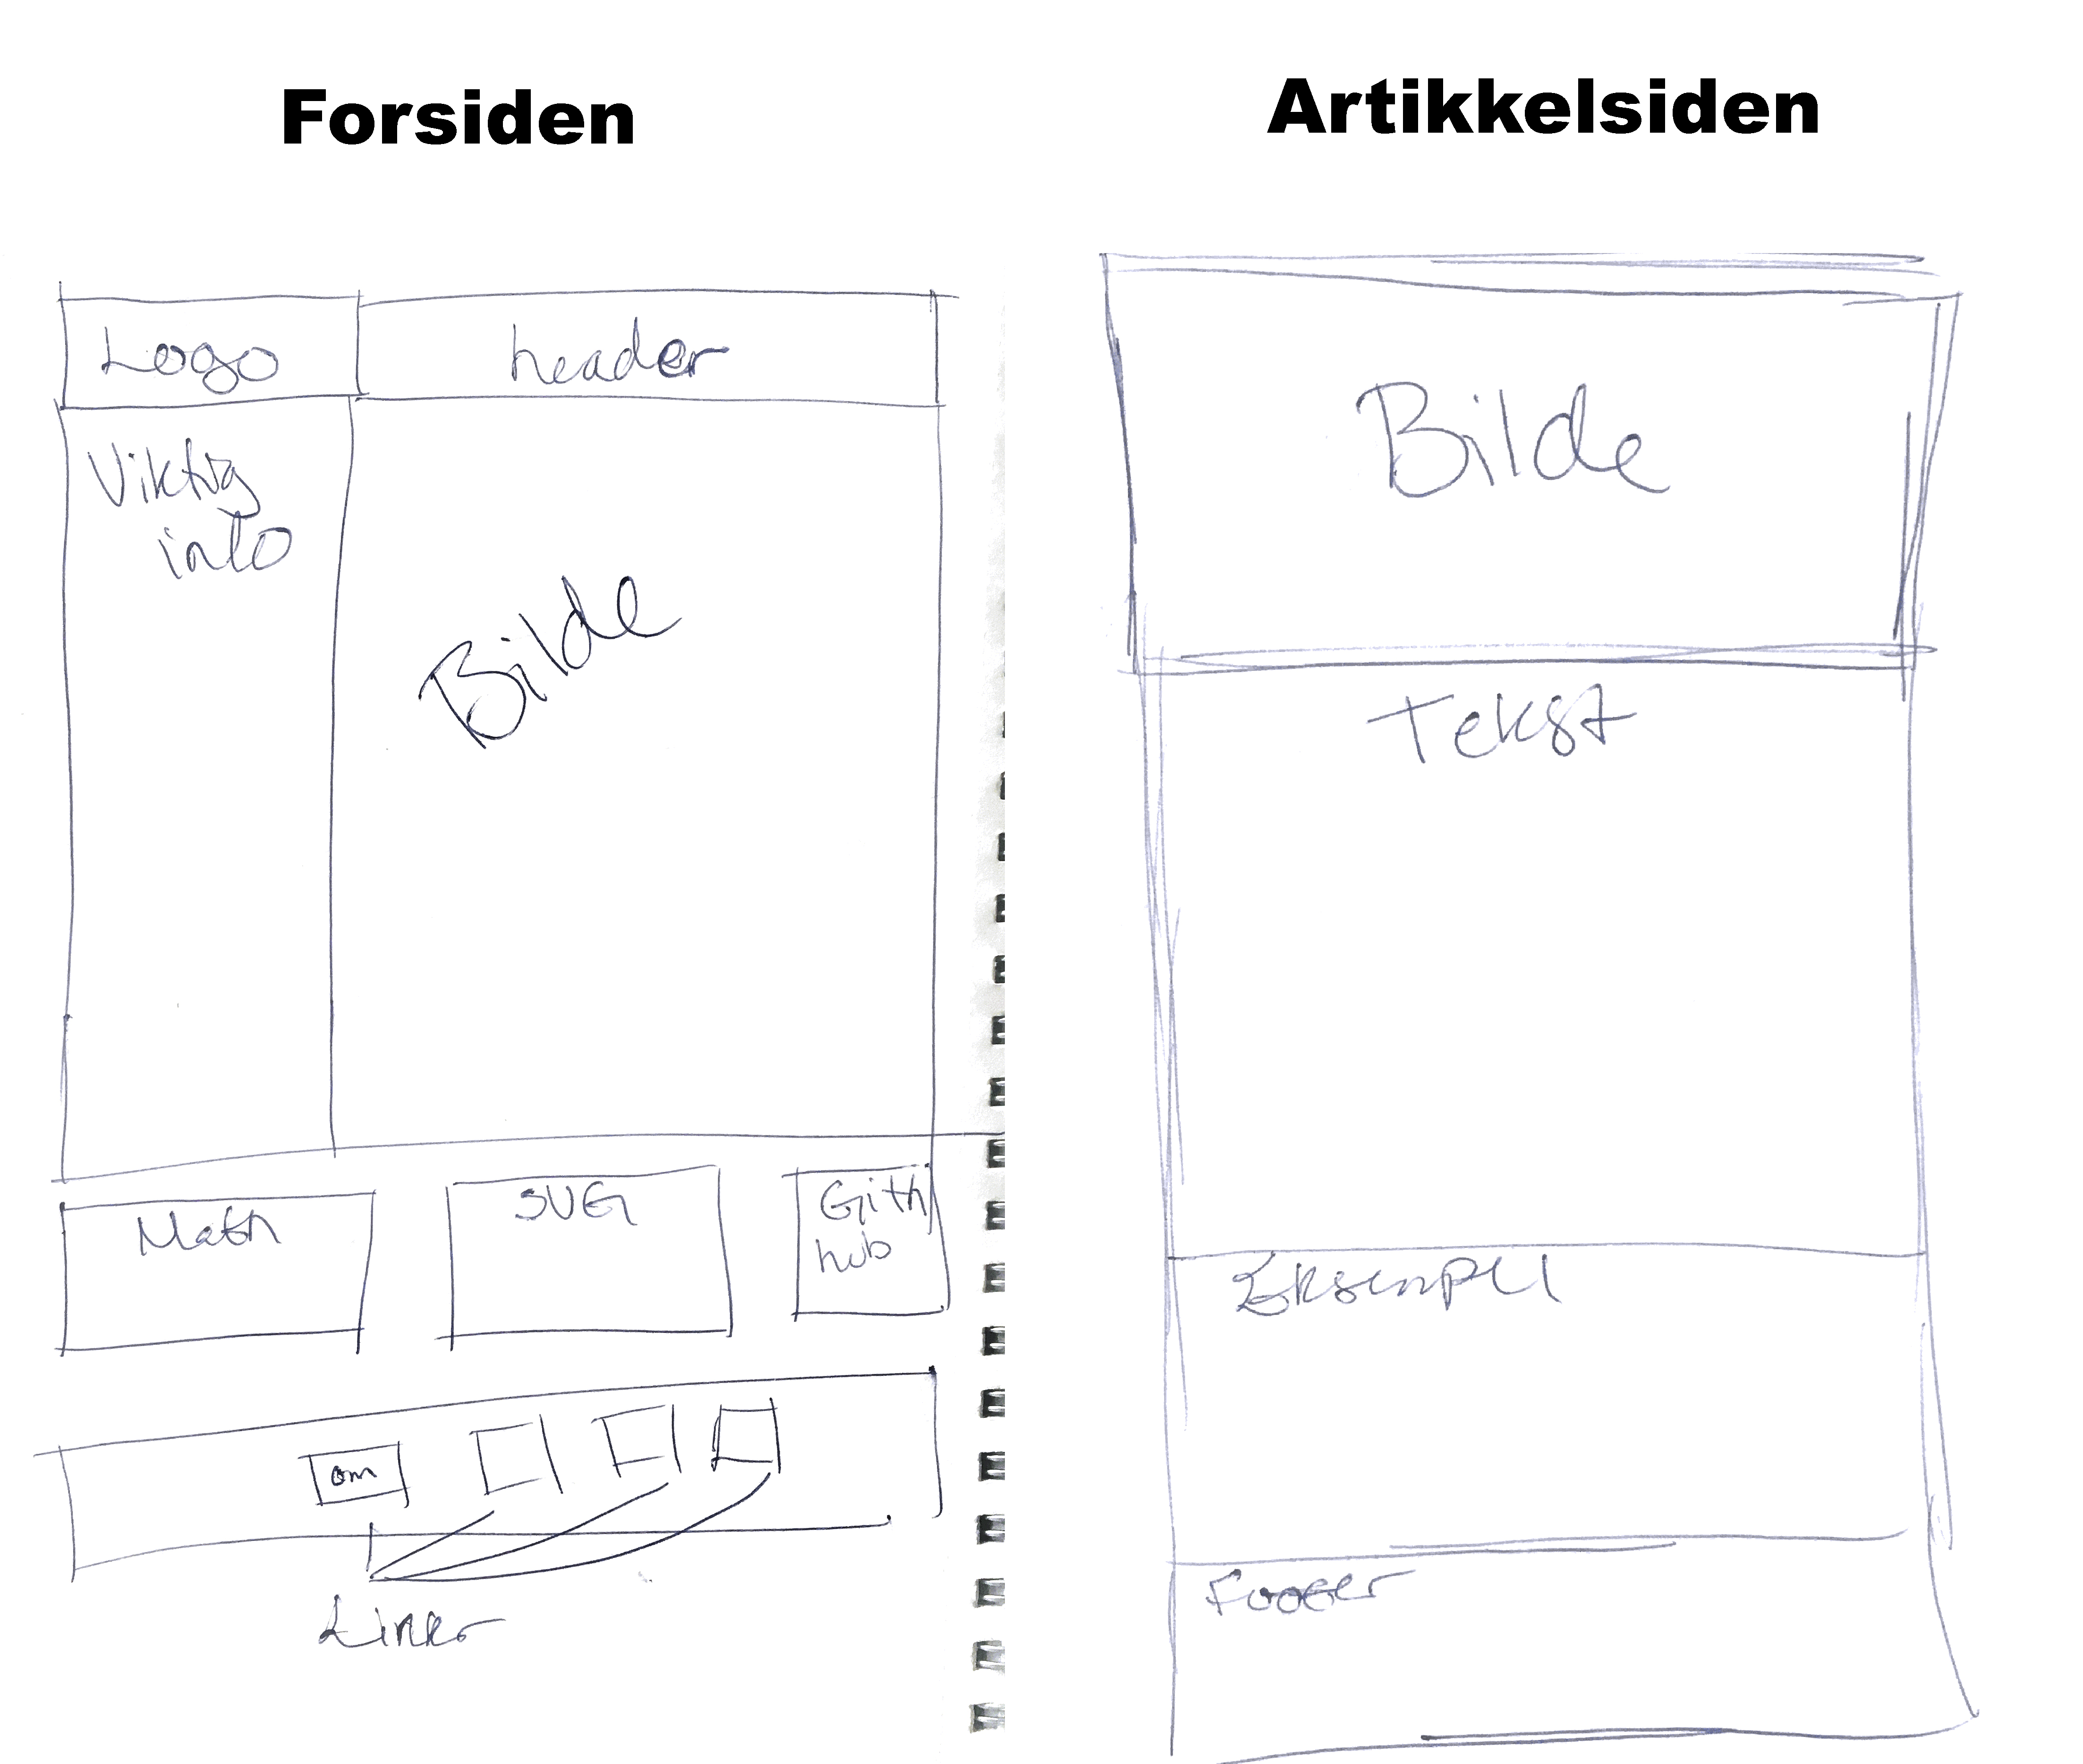 Forsiden
Logo
header
Viktig
info
Bilde
Math
SVG
Gith
hub
om
Linker
Artikkelsiden
Bilde
Tekst
Eksempel
Footer